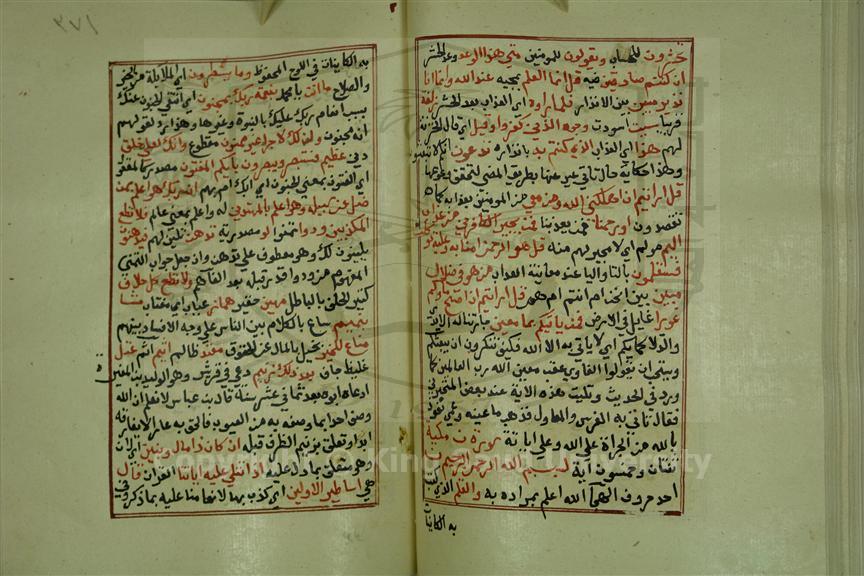 تحشرون للحساب ويقولون للمؤمنين متى هذا الوعد وعد الحشر
ان كنتم صادقين فيه قل انما العلم بمجيئه عند الله وانما انا
نذير مبين بين الانذار فلما راوه اي العذاب بعد الحشر زلفة
قريبا سيئت اسودت وجوه الذين كفروا وقيل اي قال الخزنة
لهم هذا اي العذاب الذي كنتم به بانذاره تدعون انكم لا تبعثون
وهذا حكاية حال تاتي عبر عنها بطريق المضي لتحقق وقوعها
قل ارايتم ان اهلكني الله ومن معي من المومنين بعذابه كما
تقصدون او رحمنا فلم يعذبنا فمن يجير الكافرين من عذاب
اليم مولم اي لا مجير لهم منه قل هو الرحمن امنا به وعليه توكلنا
فستعلمون بالتا واليا عند معاينة العذاب من هو في ضلال
مبين بين انحن ام انتم ام هم قل ارايتم ان اصبح ماؤكم
غورا غايرا في الارض فمن ياتيكم بماء معين جار تناله الايدي
والدلا كمايكم اي لا ياتي به الا الله فكيف تنكرون ان يبعثكم
ويستحب ان يقول القاري عقب معين الله رب العالمين كما
ورد في الحديث وتليت هذه الاية عند بعض المتجبرين
فقال تاتي به الفوس والمعاول فذهب ماء عينه وعمي نعوذ
بالله من الجراة على الله وعلى اياته سورة ن مكية
ثنتان وخمسون آية بسم الله الرحمن الرحيم ن
احد حروف الهجا الله اعلم بمراده به والقلم الذي كتب
به الكاينات
٣٧١
به الكاينات في اللوح المحفوظ وما يسطرون اي الملائكة من الخير
والصلاح ما انت يا محمد بنعمة ربك بمجنون اي انتفى الجنون عنك
بسبب انعام ربك عليك بالنبوة وغيرها وهذا رد لقولهم
انه مجنون وان لك لاجرا غير ممنون مقطوع وانك لعلى خلق
دين عظيم فستبصر ويبصرون بايكم المفتون مصدر كالمعقول
اي الفتون بمعنى الجنون اي ابك ام بهم ان ربك هو اعلم بمن
ضل عن سبيله وهو اعلم بالمهتدين له واعلم بمعنى عالم فلا تطع
المكذبين ودوا تمنوا لو مصدرية تدهن تلين لهم فيدهنون
يلينون لك وهو معطوف على تدهن وان جعل جواب التمني
المفهوم من ودوا قدر قبله بعد الفا هم ولا تطع كل حلاف
كثير الحلف بالباطل مهين حقير هماز عياب اي مغتاب مشا
بنميم ساع بالكلام بين الناس على وجه الافساد بينهم
مناع للخير بخيل بالمال عن الحقوق معتد ظالم اثيم اثم عتل
غليظ جاف بعد ذلك زنيم دعي في قريش وهو الوليد بن المغيرة
ادعاه ابوه بعد ثماني عشرة سنة قال ابن عباس لا نعلم ان الله
وصف احدا بما وصفه به من العيوب فالحق به عارا لا يفارقه
ابدا وتعلق بزنيم الظرف قبله ان كان ذا مال وبنين اي لان
وهو متعلق بما دل عليه اذا تتلى عليه اياتنا القران قال
هي اساطير الاولين اي كذب بها لانعامنا عليه بما ذكر وفي
Copyright © King Saud University